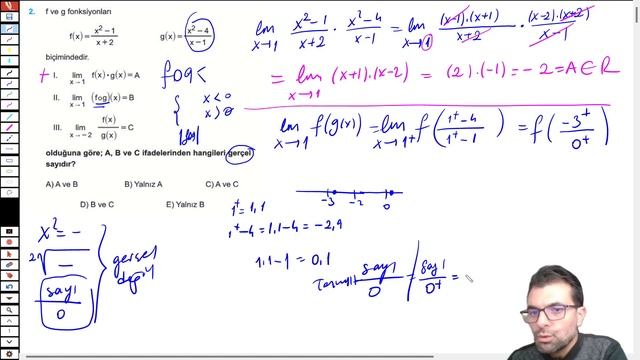 2. f ve g fonksiyonları
f(x) = x²−1 / x+2    g(x) = x²−4 / x−1
biçimindedir.
I. lim x→1 f(x)·g(x) = A
II. lim x→1 (fog)(x) = B
III. lim x→−2 f(x)/g(x) = C
olduğuna göre; A, B ve C ifadelerinden hangileri gerçel
sayıdır?
A) A ve B    B) Yalnız A    C) A ve C
D) B ve C    E) Yalnız B
x² = −
sayı / 0
fog <
x < 0
x > 0
lim x→1 x²−1 / x+2 · x²−4 / x−1 = lim x→1 (x−1)·(x+1) / x+2 · (x−2)·(x+2) / x−1
= lim x→1 (x+1)·(x−2) = (2)·(−1) = −2 = A ∈ R
lim x→1 f(g(x)) = lim x→1⁺ f(1⁺−4 / 1⁺−1) = f(−3⁺ / 0⁺)
−3 −2 0
1⁺ = 1,1
1⁺−4 = 1,1−4 = −2,9
1,1−1 = 0,1
sayı / 0
sayı / 0⁺ =